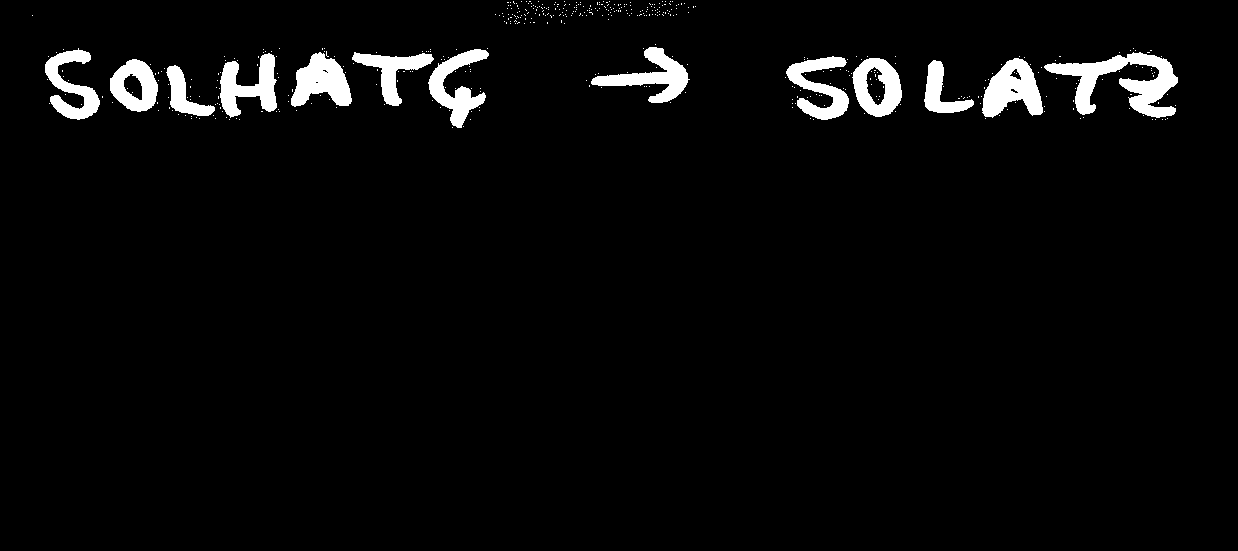 SOLHATÇ → SOLATZ